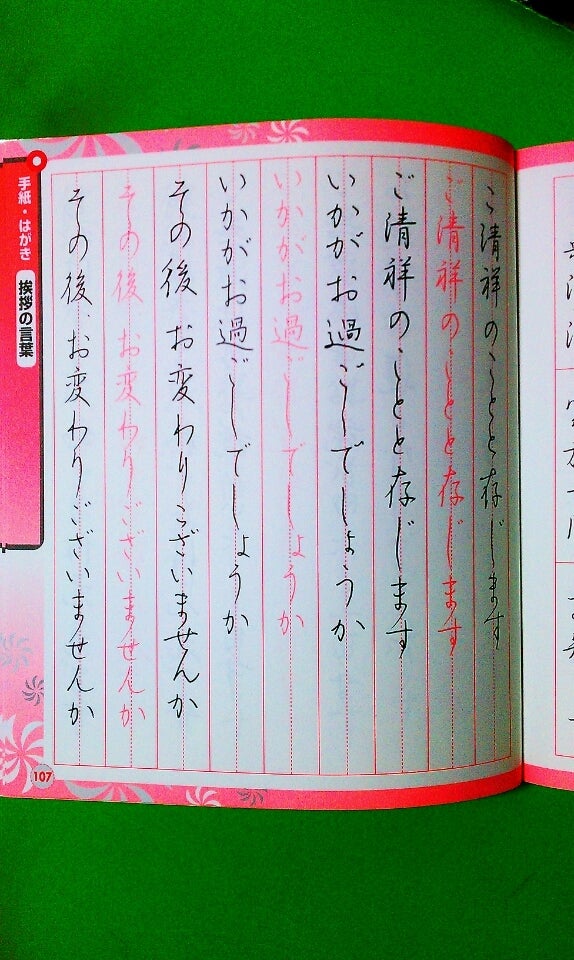 ご清祥のことと存じます
ご清祥のことと存じます
ご清祥のことと存じます
いかがお過ごしでしょうか
いかがお過ごしでしょうか
いかがお過ごしでしょうか
その後 お変わりございませんか
その後 お変わりございませんか
その後、お変わりございませんか
手紙・はがき 挨拶の言葉
107